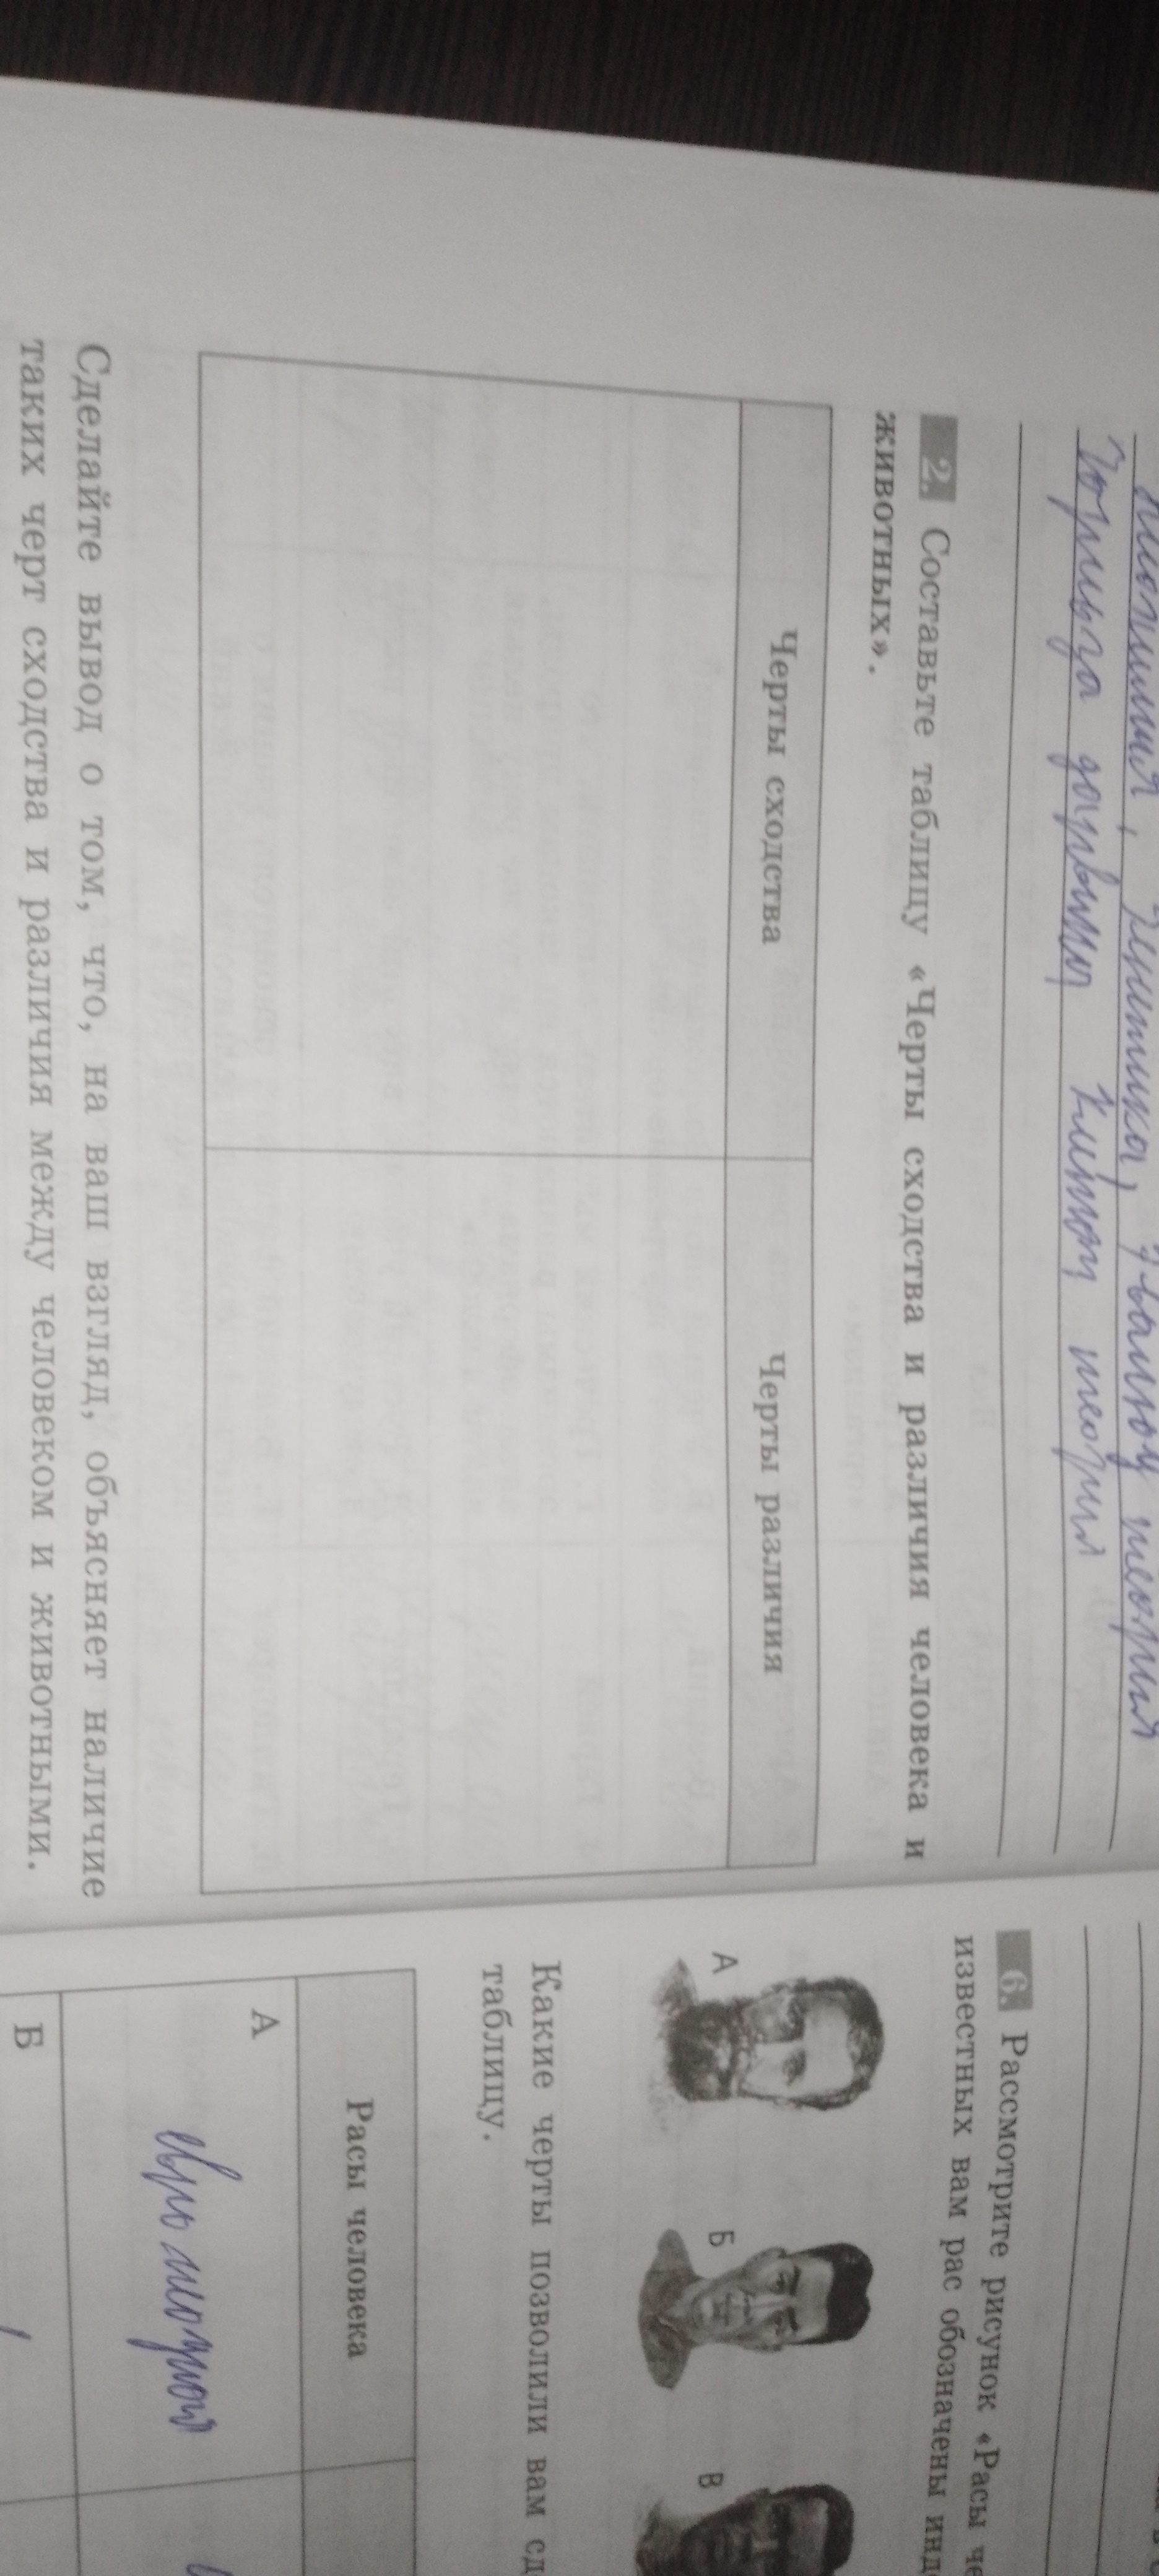 теория
теория
2. Составьте таблицу «Черты сходства и различия человека и
животных».
Черты сходства Черты различия
Сделайте вывод о том, что, на ваш взгляд, объясняет наличие
таких черт сходства и различия между человеком и животными.
6. Рассмотрите рисунок «Расы че
известных вам рас обозначены инд
А Б В
Какие черты позволили вам сд
таблицу.
Расы человека
А
Б